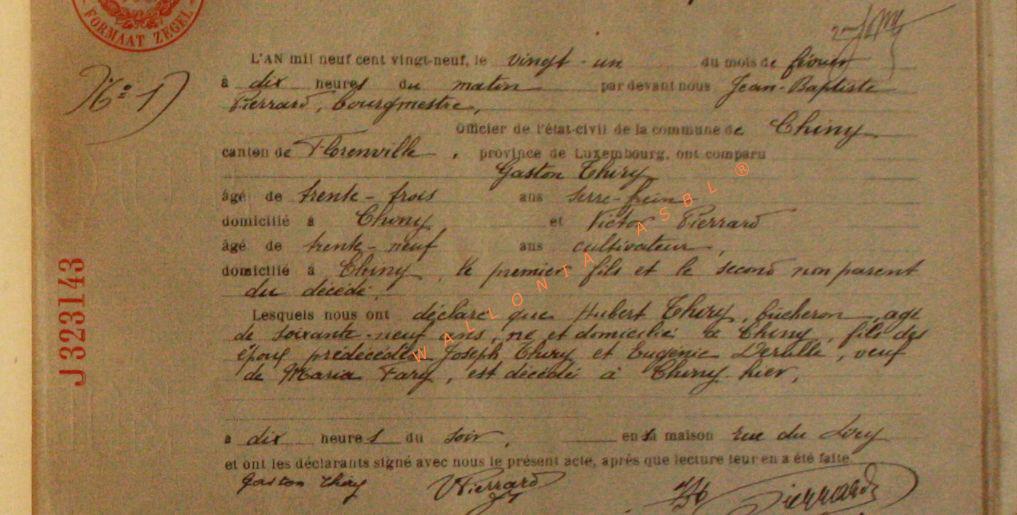 FORMAAT ZEGEL
N° 1
L'AN mil neuf cent vingt-neuf, le vingt-un du mois de février
à dix heures du matin par devant nous Jean-Baptiste
Pierrard, bourgmestre,
Officier de l'état-civil de la commune de Chiny
canton de Florenville, province de Luxembourg, ont comparu
Gaston Thiry
âgé de trente-trois ans serre-frein
domicilié à Chiny et Victor Pierrard
âgé de trente-neuf ans cultivateur,
domicilié à Chiny, le premier fils et le second non parent
du décédé.
Lesquels nous ont déclaré que Hubert Thiry, bûcheron, agé
de soixante-neuf ans, né et domicilié à Chiny, fils des
époux prédécédés Joseph Thiry et Eugénie, veuf
de Maria, est décédé à Chiny hier,
a dix heures du soir, en sa maison rue du
et ont les déclarants signé avec nous le présent acte, après que lecture leur en a été faite.
Gaston Thiry VPierrard JB Pierrard
J 323143
WALLONIA ASBL ®